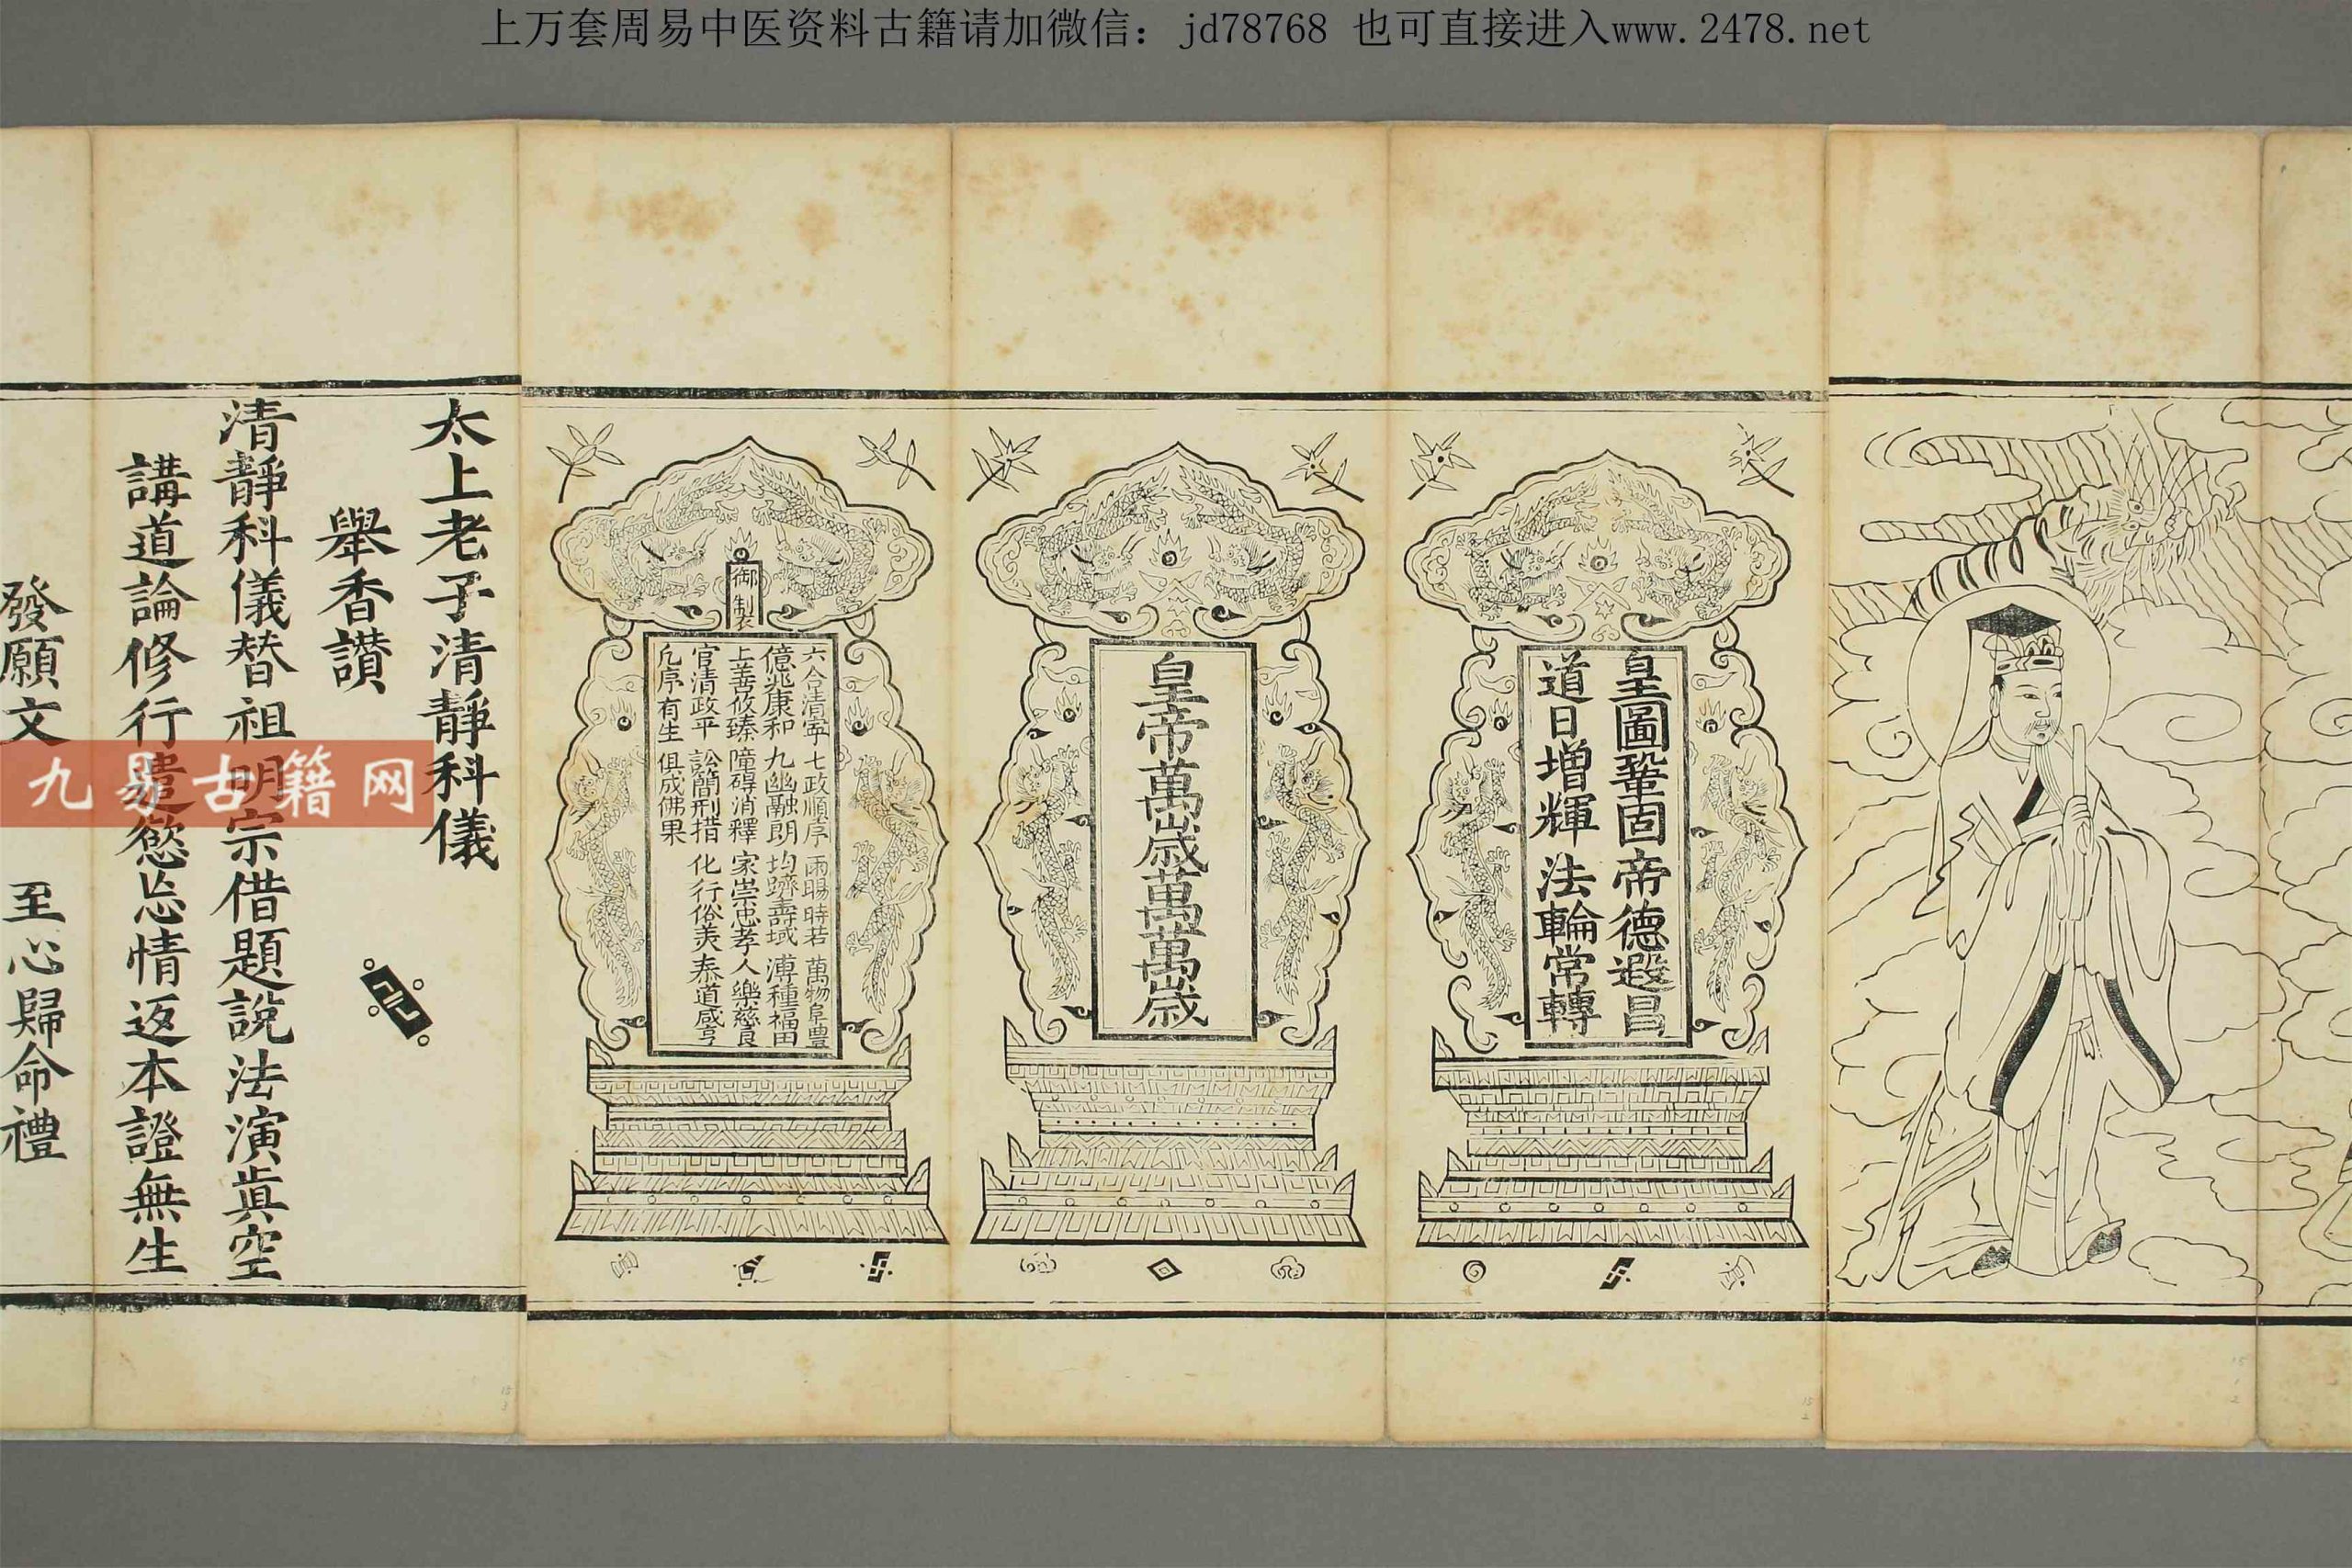 上万套周易中医资料古籍请加微信：jd78768 也可直接进入www.2478.net
皇圖鞏固 帝德遐昌
道日增輝 法輪常轉
皇帝萬歲萬萬歲
御製
六合清寧 七政順序 雨暘時若 萬物阜豊
億兆康和 九幽融朗 均躋壽域 溥種福田
上善攸臻 障碍消釋 家崇忠孝 人樂慈良
官清政平 訟簡刑措 化行俗美 泰道咸亨
凢序有生 俱成佛果
太上老子清靜科儀
舉香讃
清靜科儀替祖明宗借題說法演眞空
講道論修行遣慾忘情返本證無生
發願文 至心歸命禮
九易古籍网